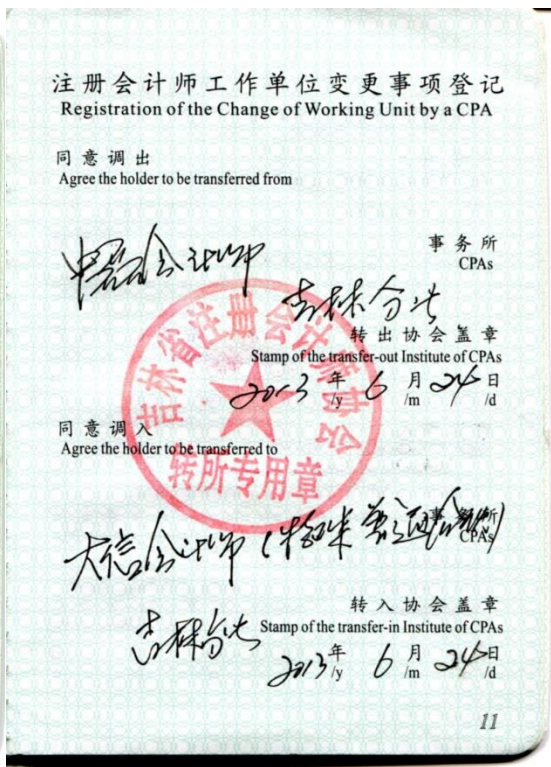 注册会计师工作单位变更事项登记
Registration of the Change of Working Unit by a CPA
同意调出
Agree the holder to be transferred from
会计师
事务所
CPAs
吉林分所
转出协会盖章
Stamp of the transfer-out Institute of CPAs
2013 年 6 月 24 日
/y /m /d
吉林省注册会计师协会
转所专用章
同意调入
Agree the holder to be transferred to
大信会计师
事务所
CPAs
吉林分所
转入协会盖章
Stamp of the transfer-in Institute of CPAs
2013 年 6 月 24 日
/y /m /d
11